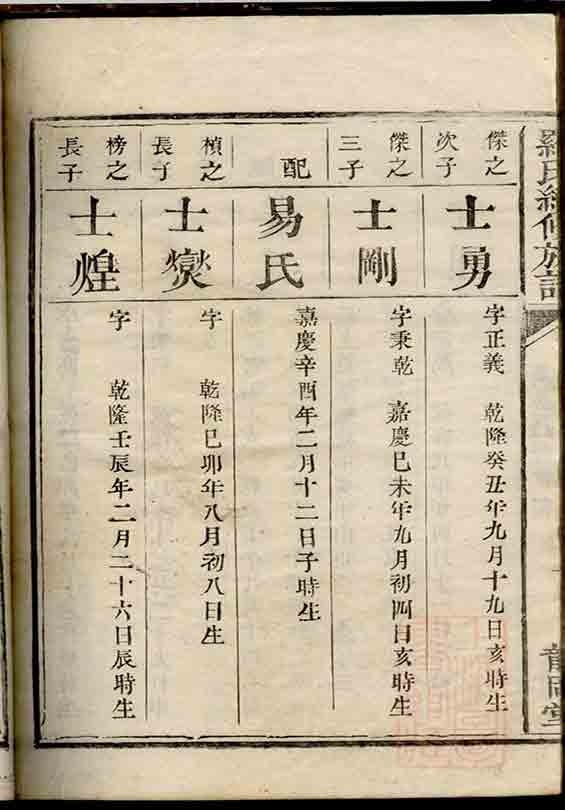 羅氏續修族譜
傑之
次子
士勇
字正義　乾隆癸丑年九月十九日亥時生
傑之
三子
士剛
字秉乾　嘉慶巳未年九月初四日亥時生
配
易氏
嘉慶辛酉年二月十二日子時生
楨之
長子
士爕
字　乾隆巳卯年八月初八日生
榜之
長子
士煌
字　乾隆壬辰年二月二十六日辰時生